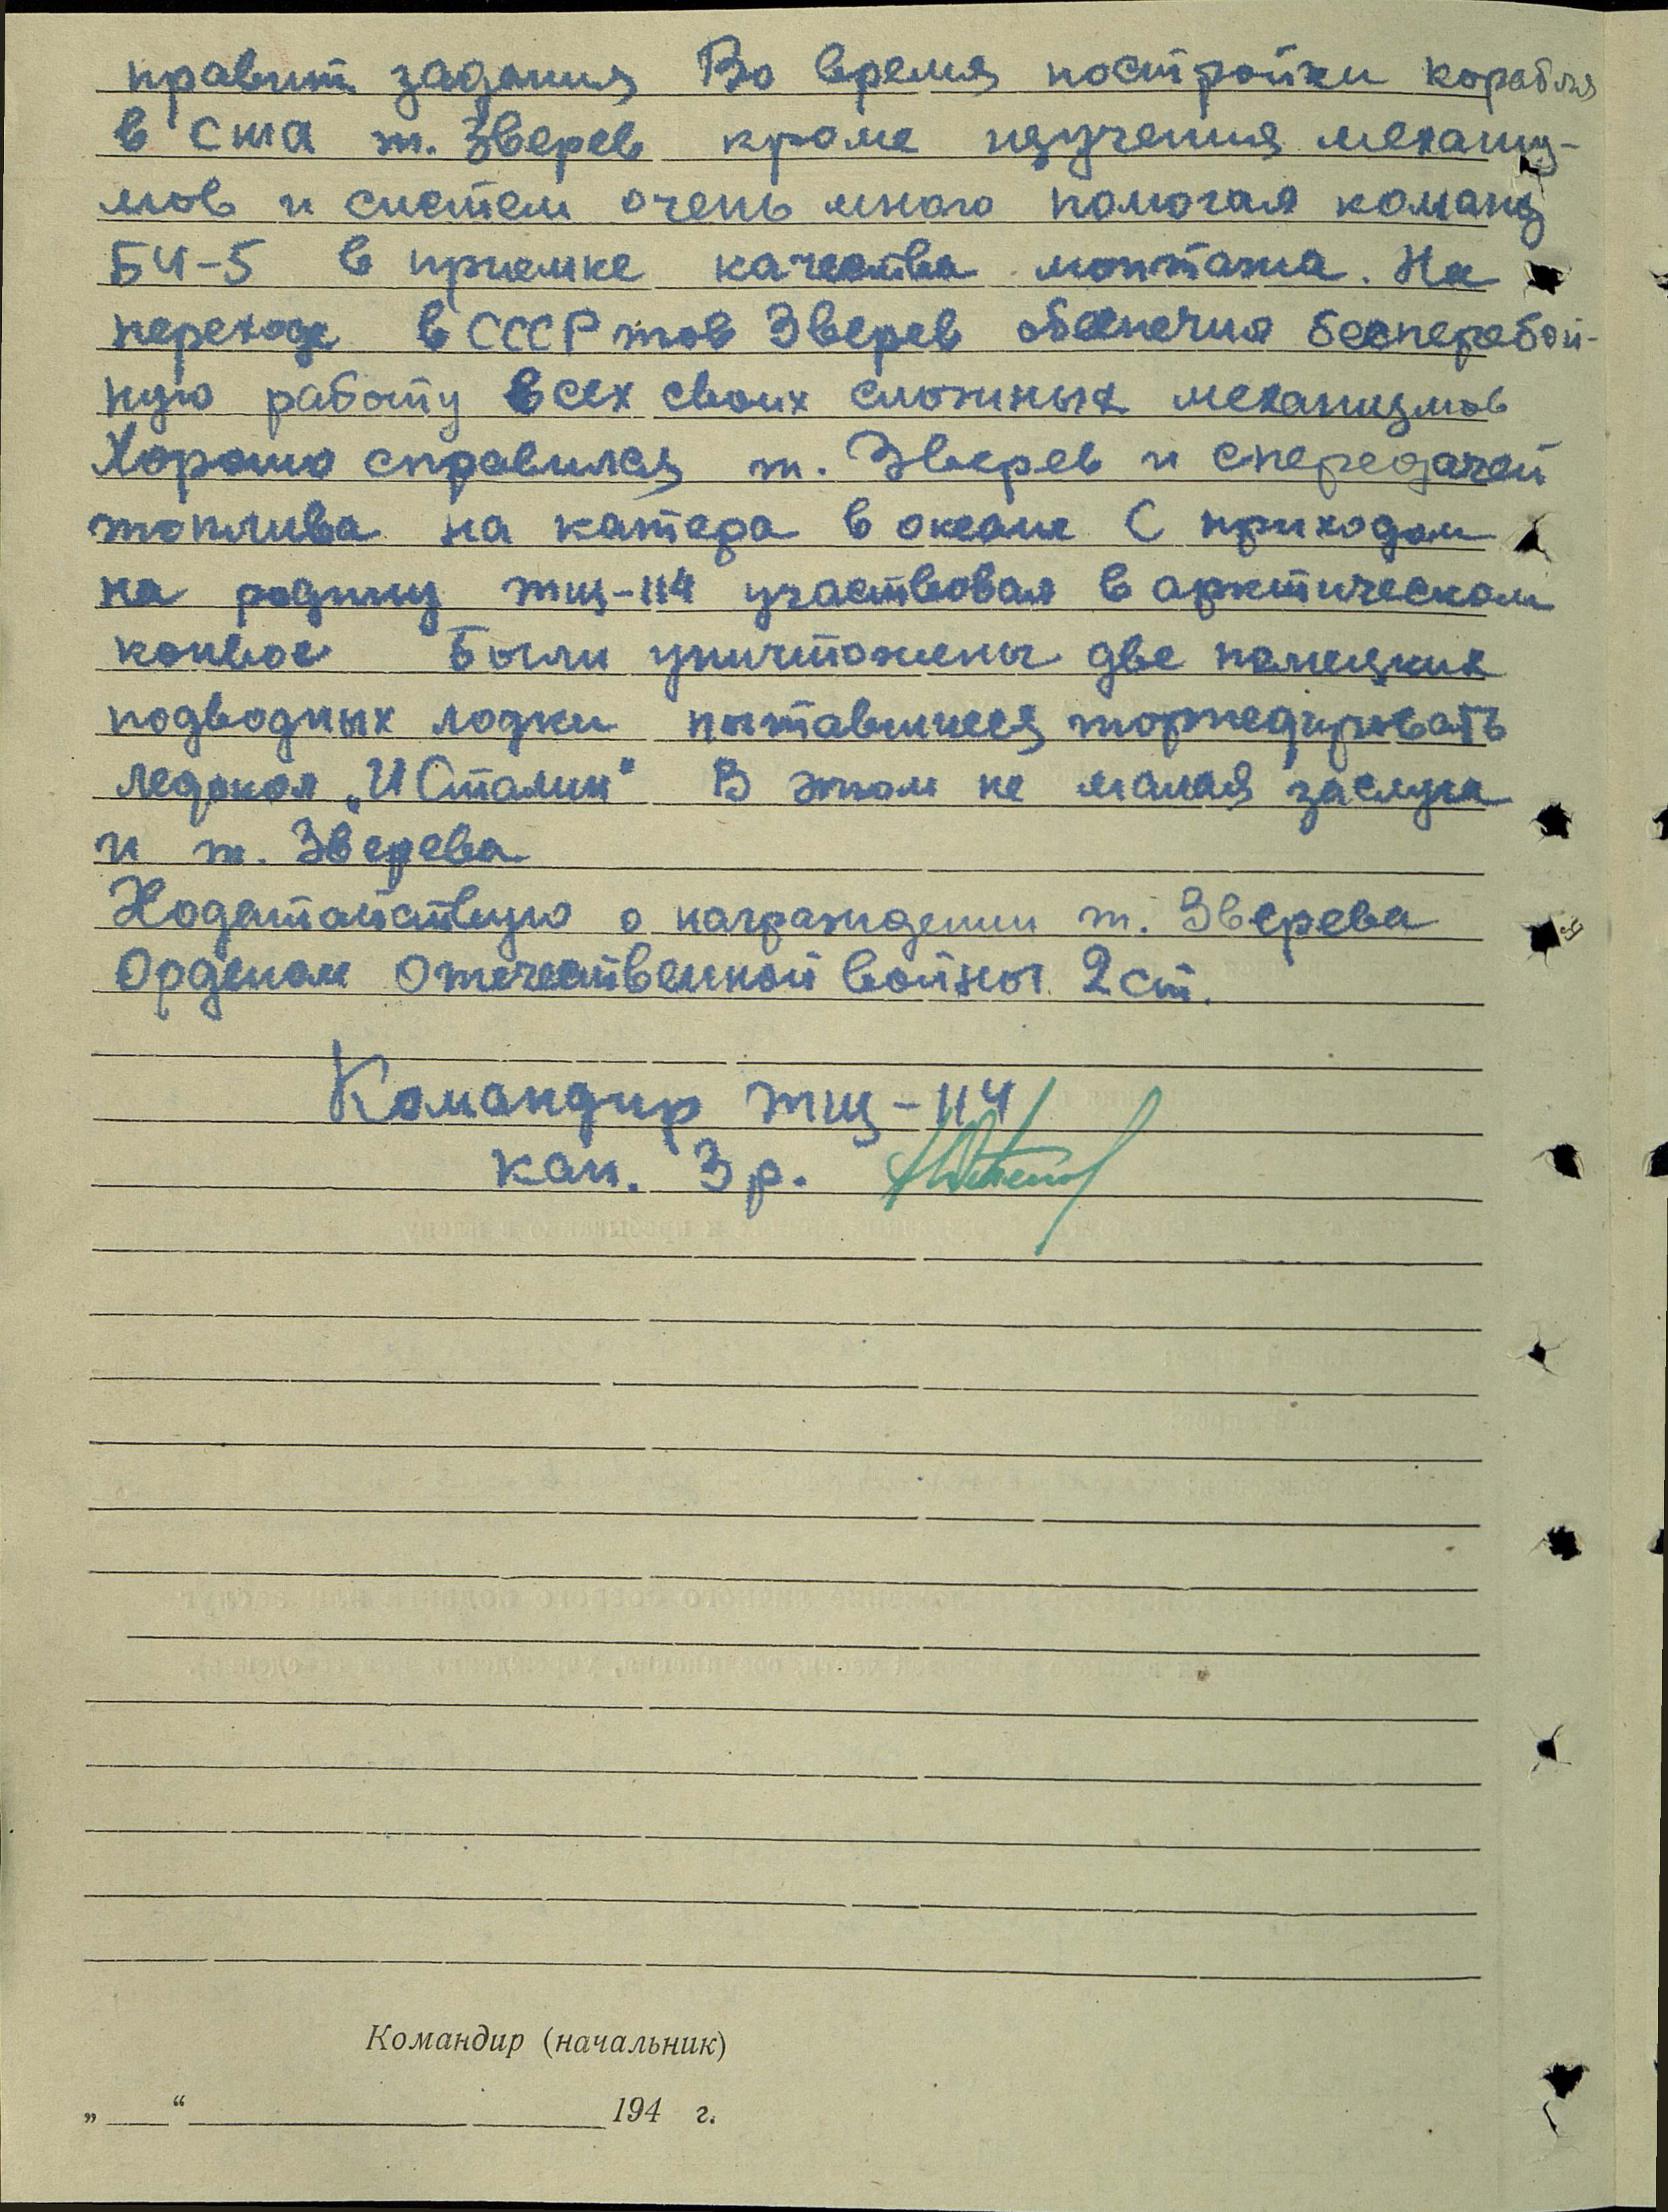 правит. задания Во время постройки корабля
в США т. Зверев кроме изучения механиз-
мов и систем очень много помогал команд
БЧ-5 в приемке качества монтажа. На
переходе в СССР тов Зверев обеспечил бесперебой-
ную работу всех своих сложных механизмов
Хорошо справился т. Зверев и с передачей
топлива на катера в океане С приходом
на родину тщ-114 участвовал в арктическом
конвое Были уничтожены две немецких
подводных лодки пытавшиеся торпедировать
ледокол „И Сталин“ В этом не малая заслуга
и т. Зверева
Ходатайствую о награждении т. Зверева
Орденом Отечественной войны 2 ст.
Командир тщ-114
кап. 3 р.
Командир (начальник)
„ “ 194 г.